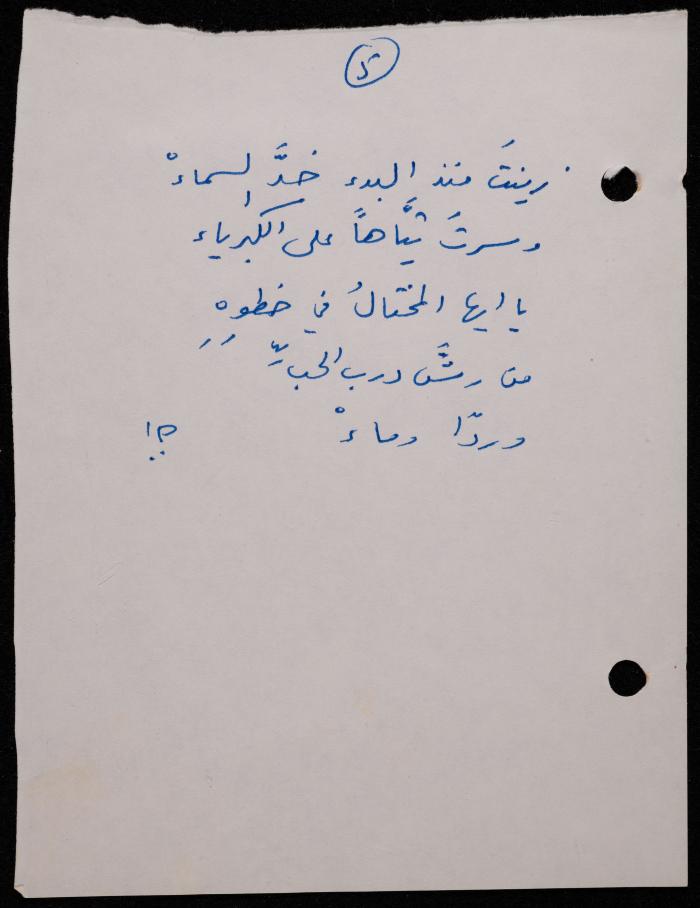 زينتَ منذ البدء خدَّ السماءْ
وسرتَ تيَّاهاً على الكبرياء
يا ايها المختالُ في خطوهِ
من رشَّ درب الحبِّ
وردًا وماءْ ؟!